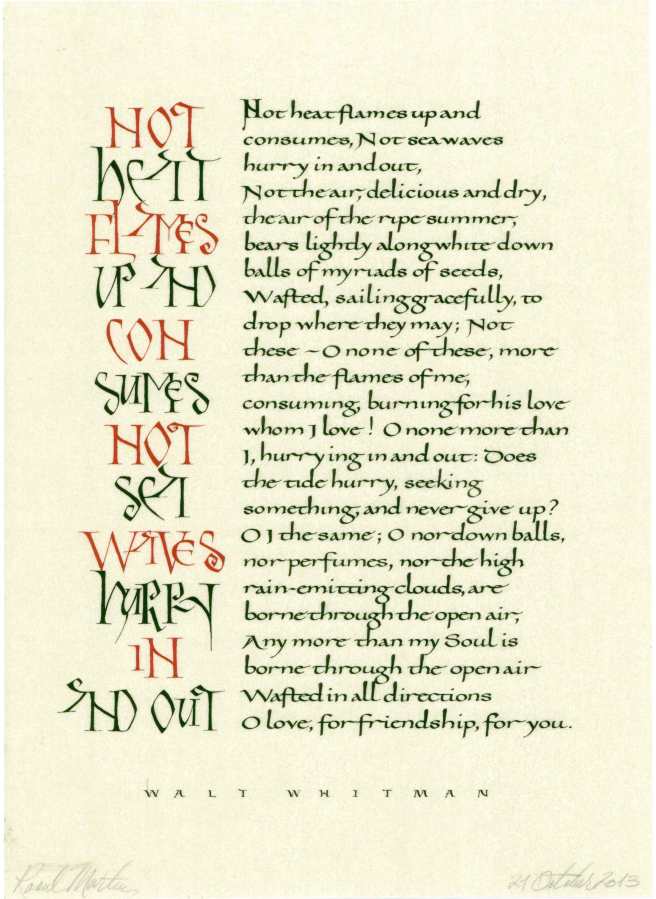 NOT
HEAT
FLAMES
UP AND
CON
SUMES
NOT
SEA
WAVES
HURRY
IN
AND OUT
Not heat flames up and
consumes, Not sea waves
hurry in and out,
Not the air, delicious and dry,
the air of the ripe summer,
bears lightly along white down
balls of myriads of seeds,
Wafted, sailing gracefully, to
drop where they may; Not
these ~ O none of these, more
than the flames of me,
consuming, burning for his love
whom I love! O none more than
I, hurrying in and out: Does
the tide hurry, seeking
something, and never give up?
O I the same; O nor down balls,
nor perfumes, nor the high
rain-emitting clouds, are
borne through the open air,
Any more than my Soul is
borne through the open air
Wafted in all directions
O love, for friendship, for you.
WALT WHITMAN
21 October 2013